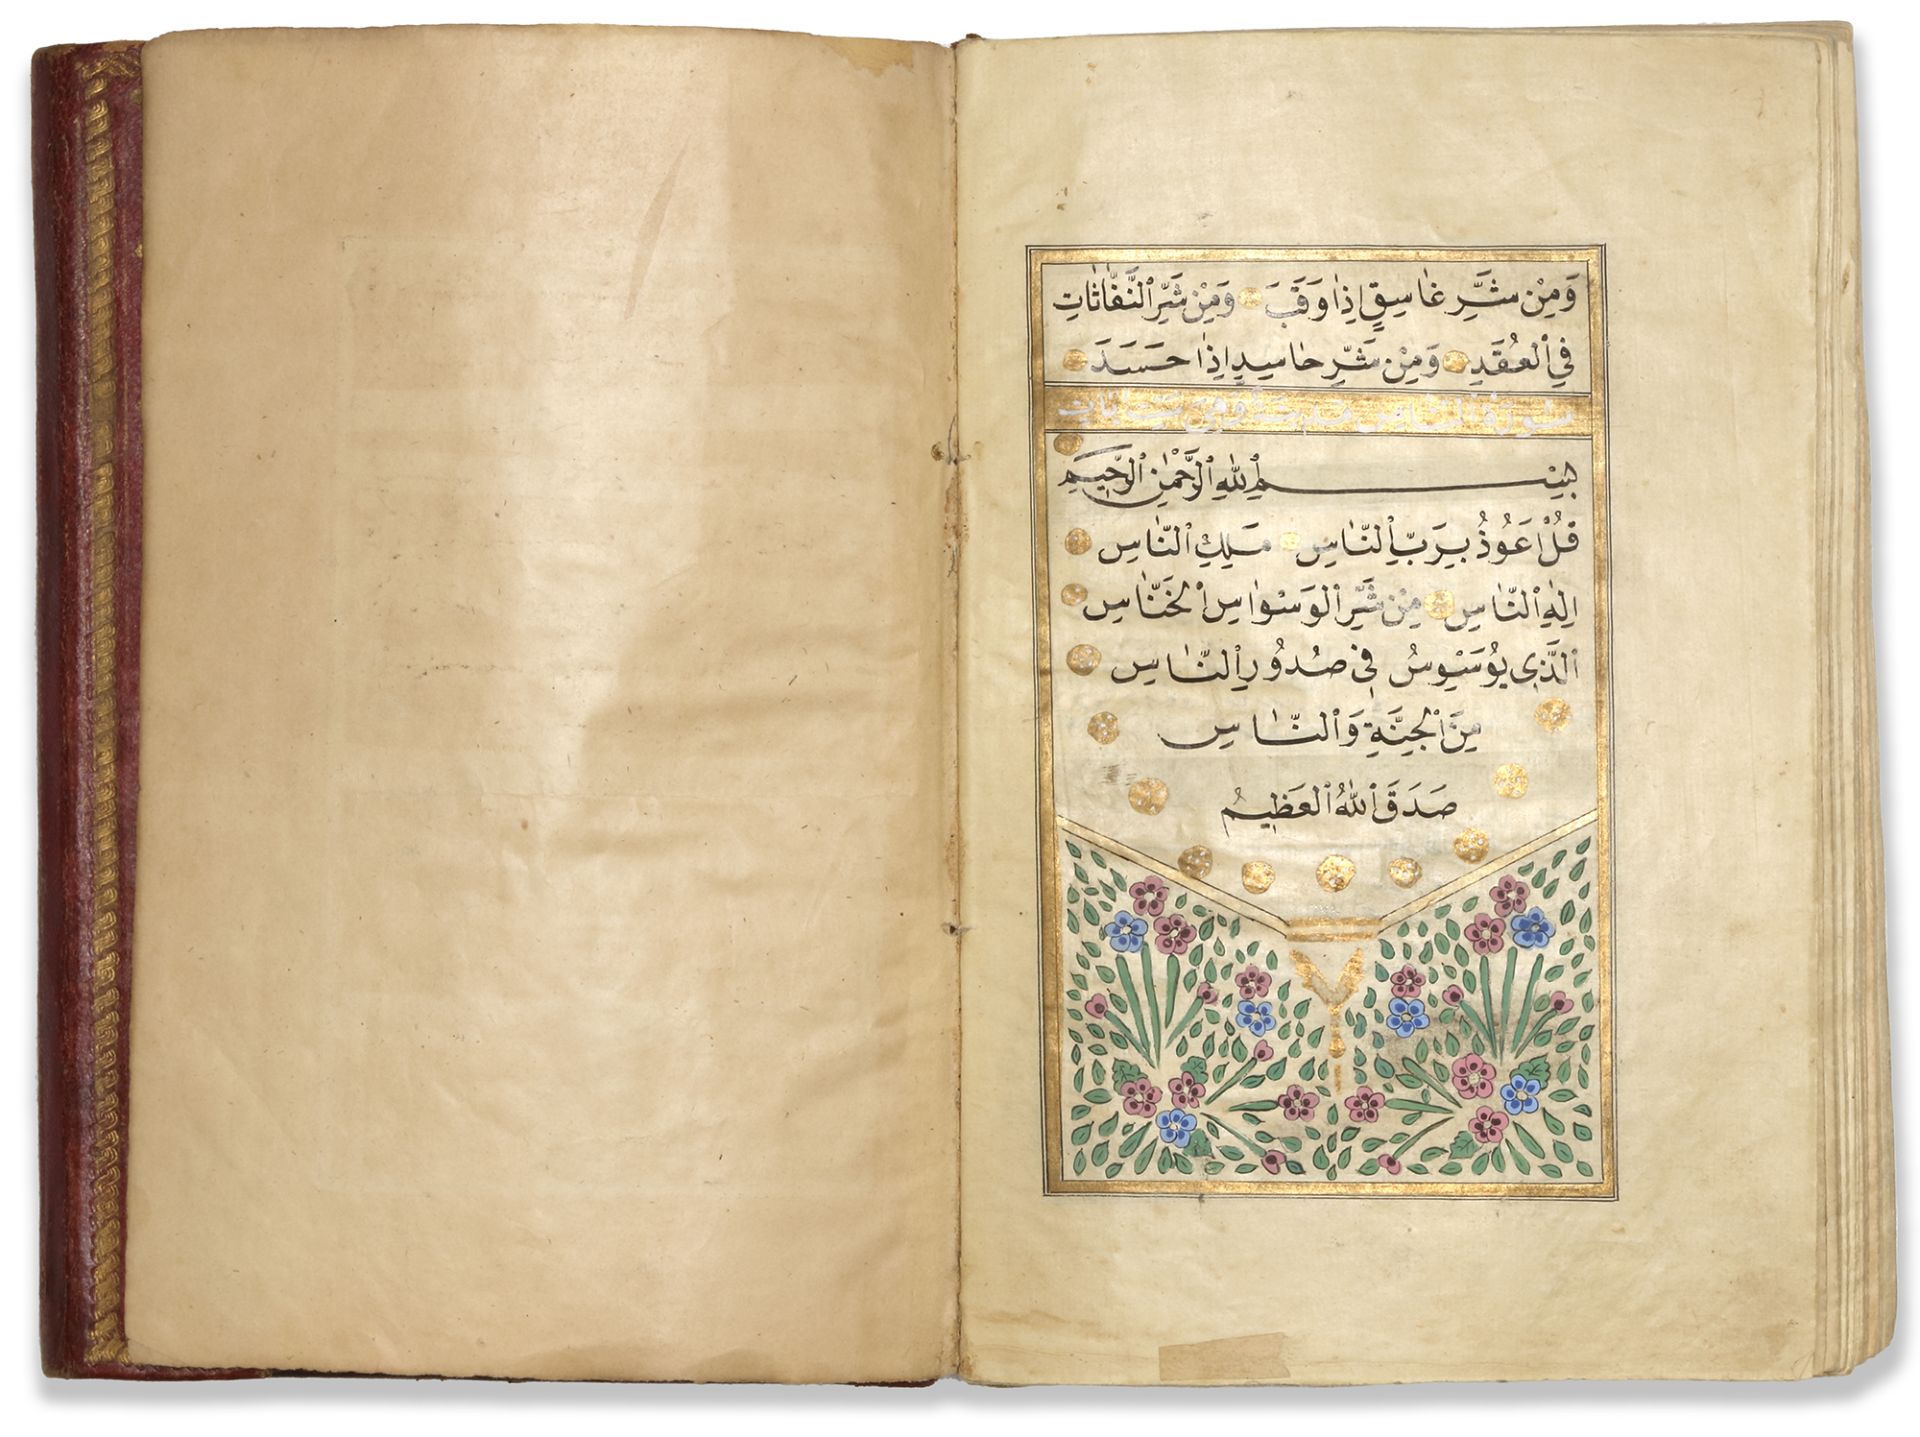 وَمِنْ شَرِّ غَاسِقٍ اِذَا وَقَبَ وَمِنْ شَرِّ النَّفَّاثَاتِ
فِي الْعُقَدِ وَمِنْ شَرِّ حَاسِدٍ اِذَا حَسَدَ
سورة الناس
بِسْمِ اللّٰهِ الرَّحْمٰنِ الرَّحِيمِ
قُلْ اَعُوذُ بِرَبِّ النَّاسِ مَلِكِ النَّاسِ
اِلٰهِ النَّاسِ مِنْ شَرِّ الْوَسْوَاسِ الْخَنَّاسِ
الَّذِي يُوَسْوِسُ فِي صُدُورِ النَّاسِ
مِنَ الْجِنَّةِ وَالنَّاسِ
صَدَقَ اللّٰهُ الْعَظِيمُ